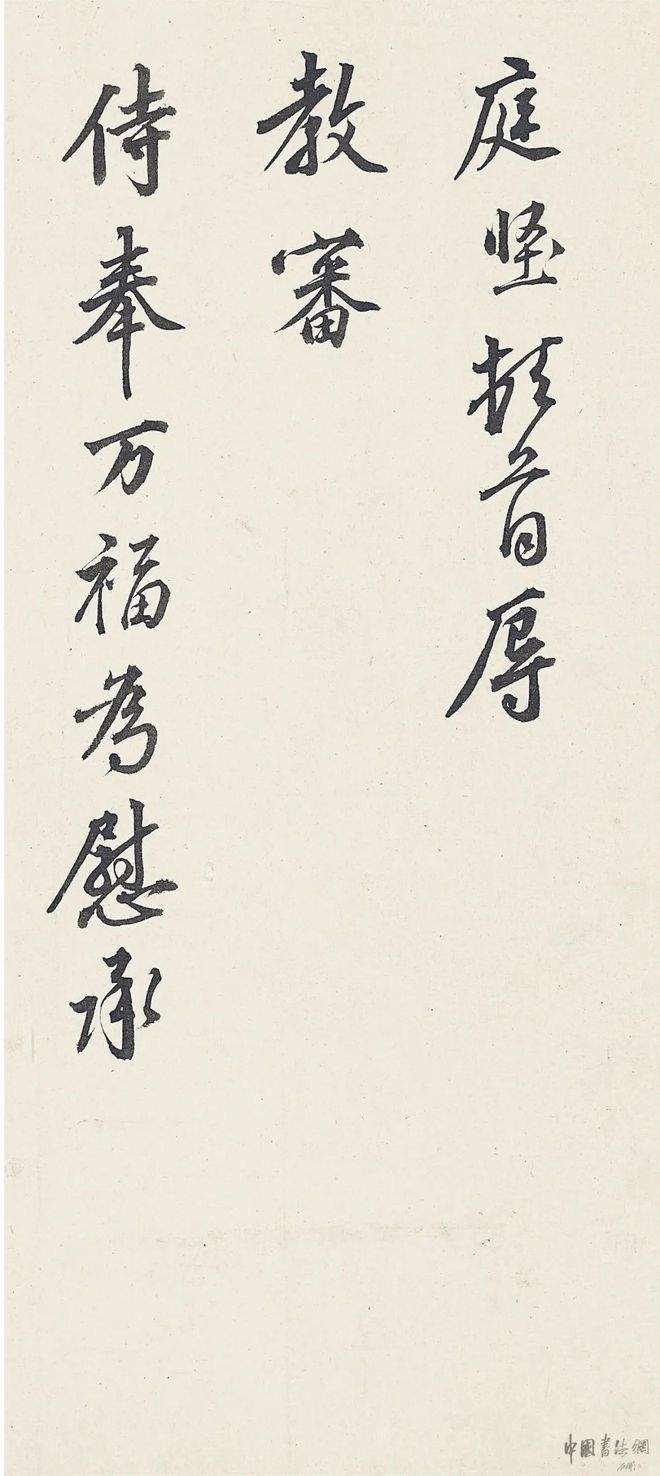 庭堅頓首辱
教審
侍奉万福為慰承
中國書法網